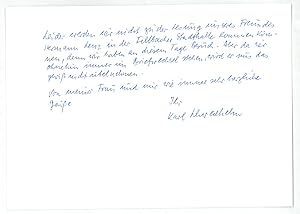 Leider werden wir nicht zu der Lesung unseres Freundes
Hermann Lenz in der Fellbacher Stadthalle kommen kön-
nen, denn wir haben an diesem Tage Besuch. Aber da wir
ohnehin immer im Briefwechsel stehen, wird er uns das
gewiß nicht übelnehmen.
Von meiner Frau und mir wie immer sehr herzliche
Grüße
Ihr
Karl